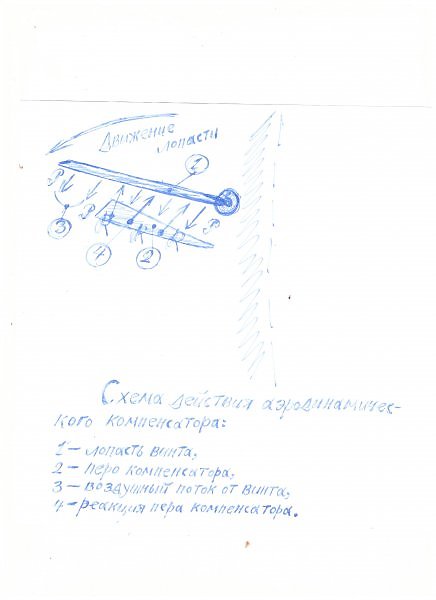 Движение
лопасти
1
P
P
P
3
4
2
Схема действия аэродинамичес-
кого компенсатора:
1 — лопасть винта,
2 — перо компенсатора,
3 — воздушный поток от винта,
4 — реакция пера компенсатора.